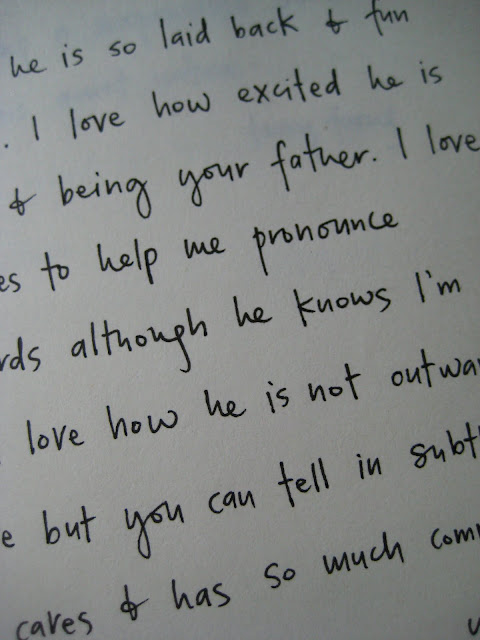 he is so laid back & fun
. I love how excited he is
& being your father. I love
es to help me pronounce
rds although he knows I'm
love how he is not outwa
e but you can tell in subt
cares & has so much com